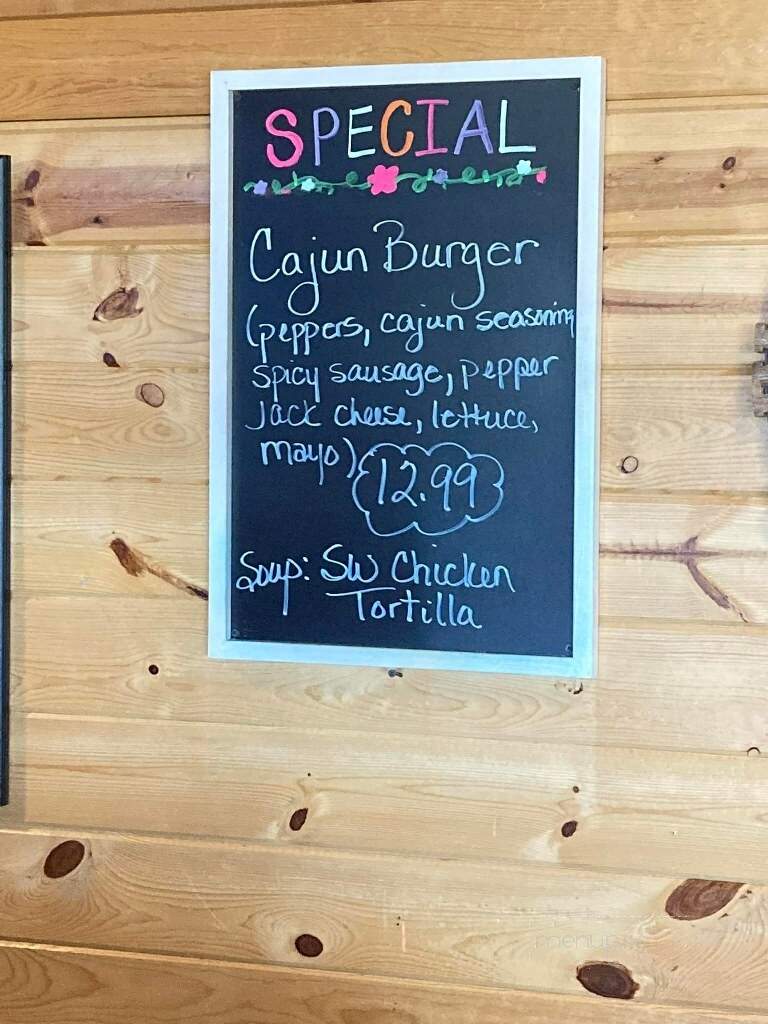 SPECIAL
Cajun Burger
(peppers, cajun seasoning
spicy sausage, pepper
Jack cheese, lettuce,
mayo)
12.99
Soup: SW Chicken
Tortilla